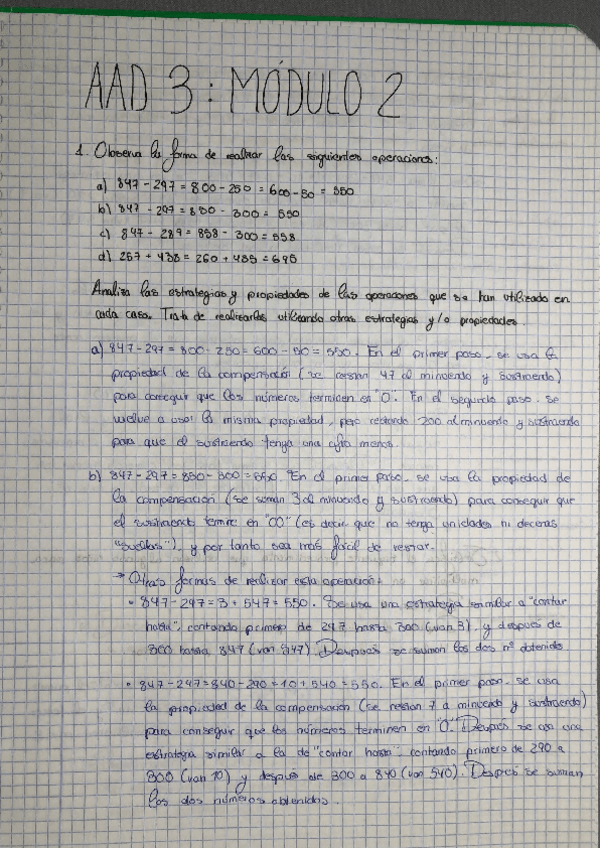 AAD 3: MÓDULO 2
1. Observa la forma de realizar las siguientes operaciones:
a) 847 - 297 = 800 - 250 = 600 - 50 = 550
b) 847 - 297 = 850 - 300 = 550
c) 847 - 289 = 858 - 300 = 558
d) 257 + 438 = 260 + 435 = 695
Analiza las estrategias y propiedades de las operaciones que se han utilizado en
cada caso. Trata de realizarlas utilizando otras estrategias y/o propiedades.
a) 847 - 297 = 800 - 250 = 600 - 50 = 550. En el primer paso, se usa la
propiedad de la compensación (se restan 47 al minuendo y sustraendo)
para conseguir que los números terminen en "0". En el segundo paso, se
vuelve a usar la misma propiedad, pero restando 200 al minuendo y sustraendo
para que el sustraendo tenga una cifra menos.
b) 847 - 297 = 850 - 300 = 550. En el primer paso, se usa la propiedad de
la compensación (se suman 3 al minuendo y sustraendo) para conseguir que
el sustraendo termine en "00" (es decir, que no tenga unidades ni decenas
), y por tanto sea más fácil de restar.
→ Otras formas de realizar esta operación:
• 847 - 297 = 3 + 547 = 550. Se usa una estrategia similar a "contar
hasta", contando primero de 297 hasta 300 (van 3), y después de
300 hasta 847 (van 547). Después se suman los dos nº obtenidos
• 847 - 297 = 840 - 290 = 10 + 540 = 550. En el primer paso, se usa
la propiedad de la compensación (se restan 7 a minuendo y sustraendo)
para conseguir que los números terminen en "0". Después se usa una
estrategia similar a la de "contar hasta" contando primero de 290 a
300 (van 10) y después de 300 a 840 (van 540). Después se suman
los dos números obtenidos.